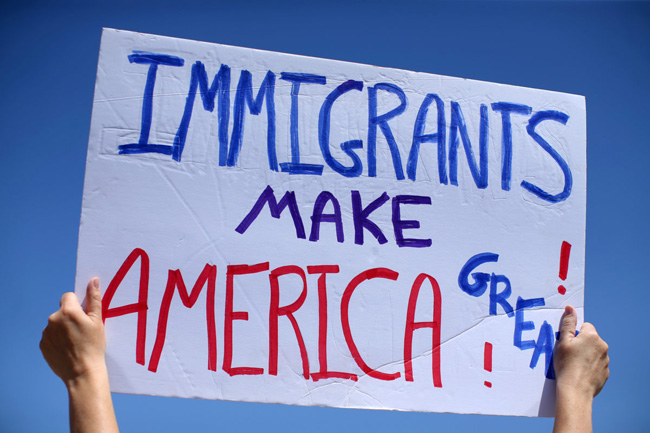 IMMIGRANTS
MAKE
AMERICA GREA!!